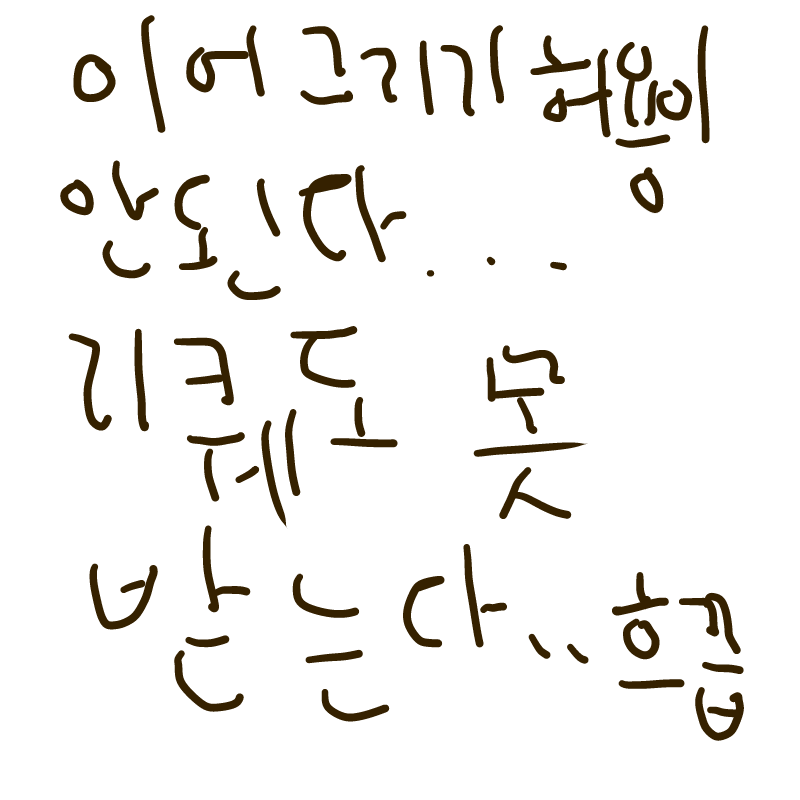 이어그리기 허용이
안된다...
리퀘도 못
받는다.. 흐끕